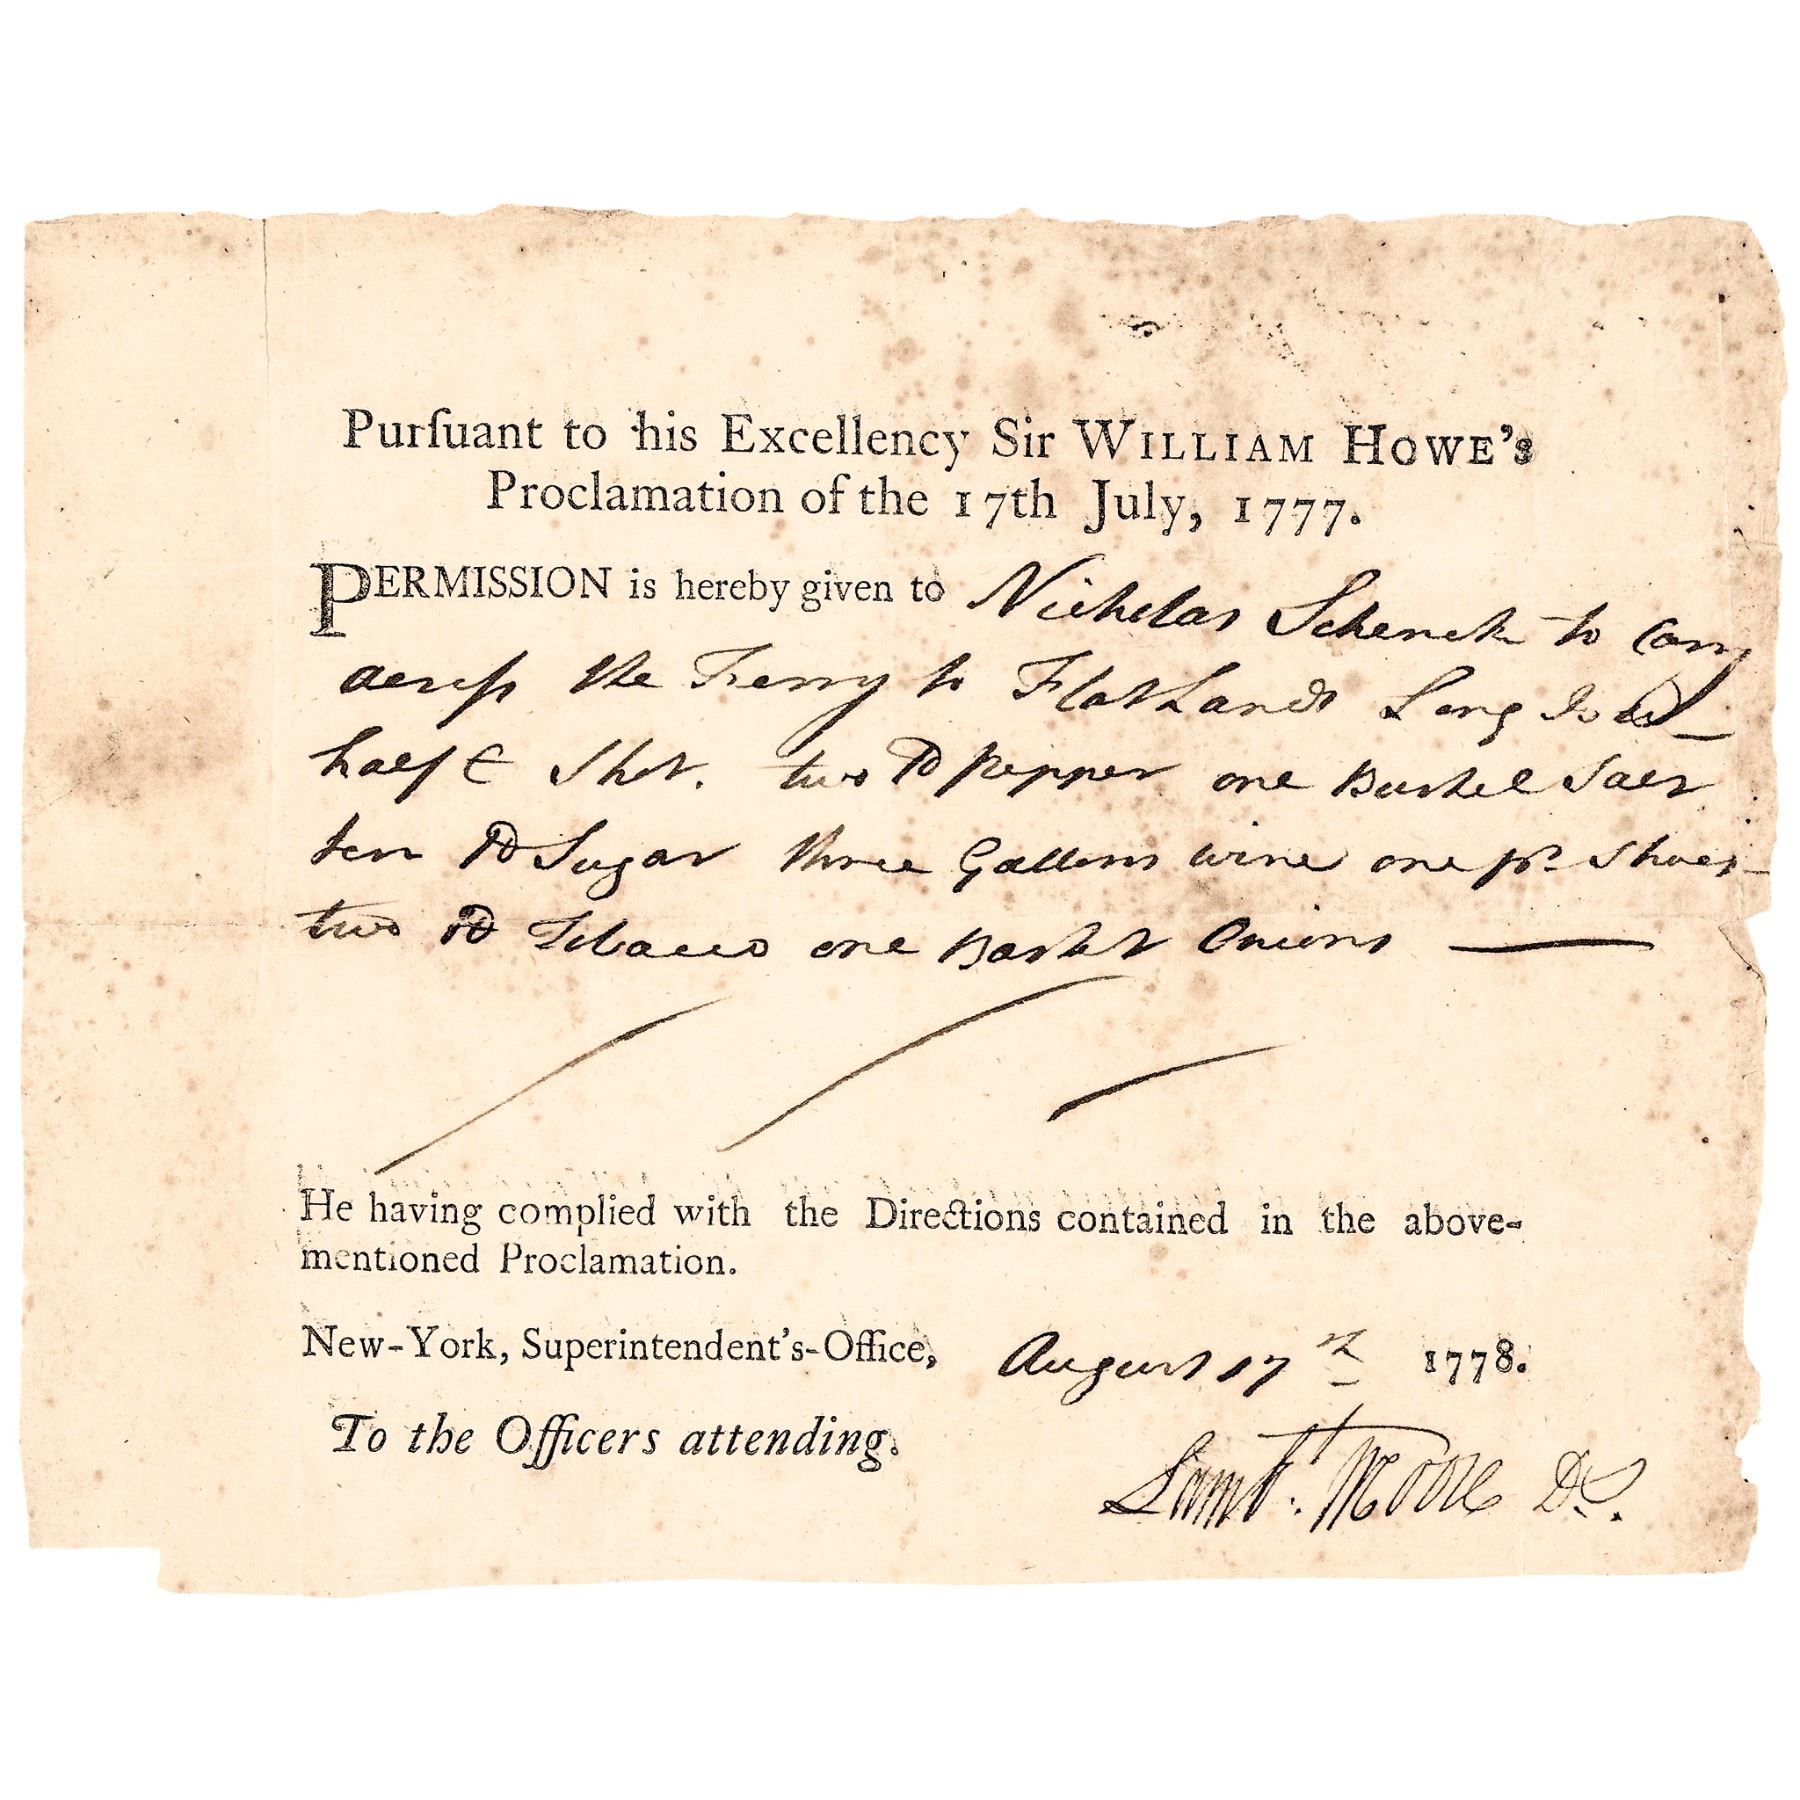 Purſuant to his Excellency Sir WILLIAM HOWE's
Proclamation of the 17th July, 1777.
PERMISSION is hereby given to Nicholas Schenck to Carry
acroſs the Ferry to FlatLands Long Island
half C Shot. two lb pepper one Bushel Salt
ten lb Sugar three Gallons wine one pr. Shoes
two lb Tobacco one Basket Onions
He having complied with the Directions contained in the above-
mentioned Proclamation.
New-York, Superintendent's-Office, August 17th 1778.
To the Officers attending.
Lambt. Moore DS.